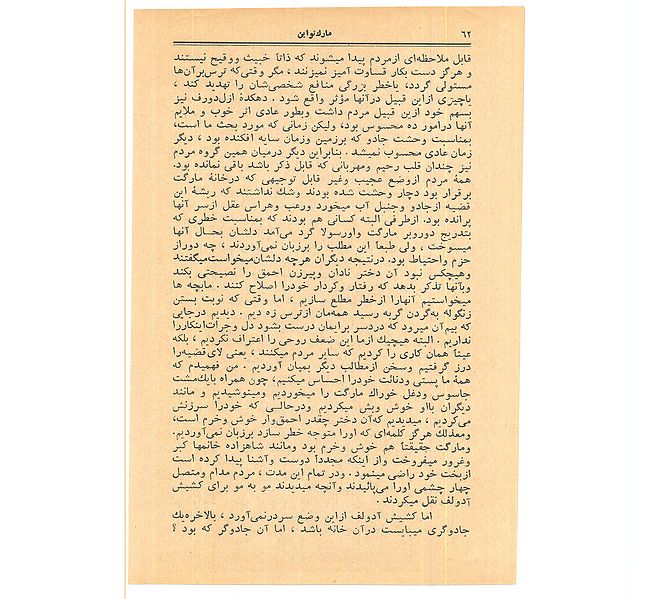 ۶۲
مارك‌تواین
قابل ملاحظه‌ای ازمردم پیدا میشوند که ذاتاً خبیث ووقیح نیستند
و هرگز دست بکار قساوت آمیز نمیزنند ، مگر وقتی‌که ترس‌برآن‌ها
مستولی گردد، یاخطر بزرگی منافع شخصی‌شان را تهدید کند ،
یاچیزی ازاین قبیل درآنها مؤثر واقع شود . دهکدهٔ ازل‌دورف نیز
بسهم خود ازین قبیل مردم داشت وبطور عادی اثر خوب و ملایم
آنها درامور ده محسوس بود، ولیکن زمانی که مورد بحث ما است،
بمناسبت وحشت جادو که برزمین وزمان سایه افکنده بود ، دیگر
زمان عادی محسوب نمیشد . بنابراین دیگر درمیان همین گروه مردم
نیز چندان قلب رحیم ومهربانی که قابل ذکر باشد باقی نمانده بود.
همهٔ مردم ازوضع عجیب وغیر قابل توجیهی که درخانهٔ مارگت
برقرار بود دچار وحشت شده بودند وشك نداشتند که ریشهٔ این
قضیه ازجادو وجنبل آب میخورد ورعب وهراس عقل ازسر آنها
پرانده بود. ازطرفی البته کسانی هم بودند که بمناسبت خطری که
بتدریج دوروبر مارگت واورسولا گرد می‌آمد دلشان بحال آنها
میسوخت ، ولی طبعاً این مطلب را برزبان نمی‌آوردند ، چه دوراز
حزم واحتیاط بود. درنتیجه دیگران هرچه دلشان‌میخواست‌میگفتند
وهیچکس نبود آن دختر نادان وپیرزن احمق را نصیحتی بکند
وبآنها تذکر بدهد که رفتار وکردار خودرا اصلاح کنند . مابچه ها
میخواستیم آنهارا ازخطر مطلع سازیم ، اما وقتی که نوبت بستن
زنگوله به‌گردن گربه رسید همه‌مان ازترس زه زدیم . دیدیم درجایی
که بیم‌آن میرود که دردسر برایمان درست بشود دل وجرأت‌اینکاررا
نداریم . البته هیچیك ازما این ضعف روحی را اعتراف نکردیم ، بلکه
عیناً همان کاری را کردیم که سایر مردم میکنند ، یعنی لای قضیه‌را
درز گرفتیم وسخن ازمطالب دیگر بمیان آوردیم . من فهمیدم که
همهٔ ما پستی ودنائت خودرا احساس میکنیم، چون همراه بایك‌مشت
جاسوس ودغل خوراك مارگت را میخوردیم ومینوشیدیم و مانند
دیگران بااو خوش وبش میکردیم ودرحالی که خودرا سرزنش
می‌کردیم ، میدیدیم که‌آن دختر چقدر احمق‌وار خوش وخرم است،
ومعذلك هرگز کلمه‌ای که اورا متوجه خطر سازد برزبان نمی‌آوردیم.
ومارگت حقیقتاً هم خوش وخرم بود ومانند شاهزاده خانمها کبر
وغرور میفروخت واز اینکه مجدداً دوست وآشنا پیدا کرده است
ازبخت خود راضی مینمود . ودر تمام این مدت ، مردم مدام ومتصل
چهار چشمی اورا می‌پائیدند وآنچه میدیدند مو به مو برای کشیش
آدولف نقل میکردند .
اما کشیش آدولف ازاین وضع سردرنمی‌آورد ، بالاخره‌یك
جادوگری میبایست درآن خانه باشد ، اما آن جادوگر که بود ؟